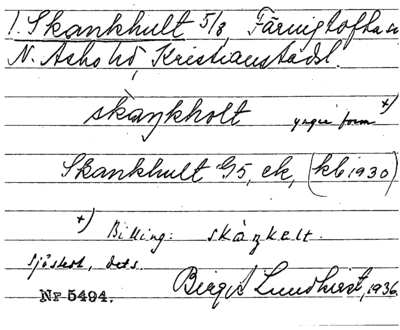 1. Skankhult 5/8, Färingtofta sn
N. Åsbo hd, Kristianstads l.
skaŋkholt yngre form +)
Skankhult G5, ek, (kb 1930)
+) Billing: skàŋkelt.
Sjöskog, dets.
Birgit Lundkvist, 1936.
Nr 5494.